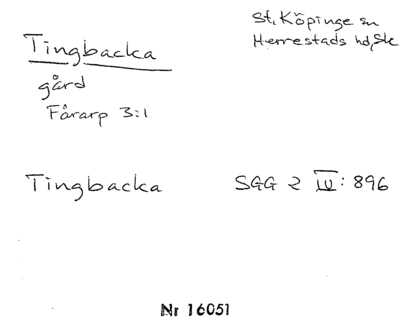 St. Köpinge sn
Herrestads hd, Sk
Tingbacka
gård
Fårarp 3:1
Tingbacka SGG 2 IV: 896
Nr 16051